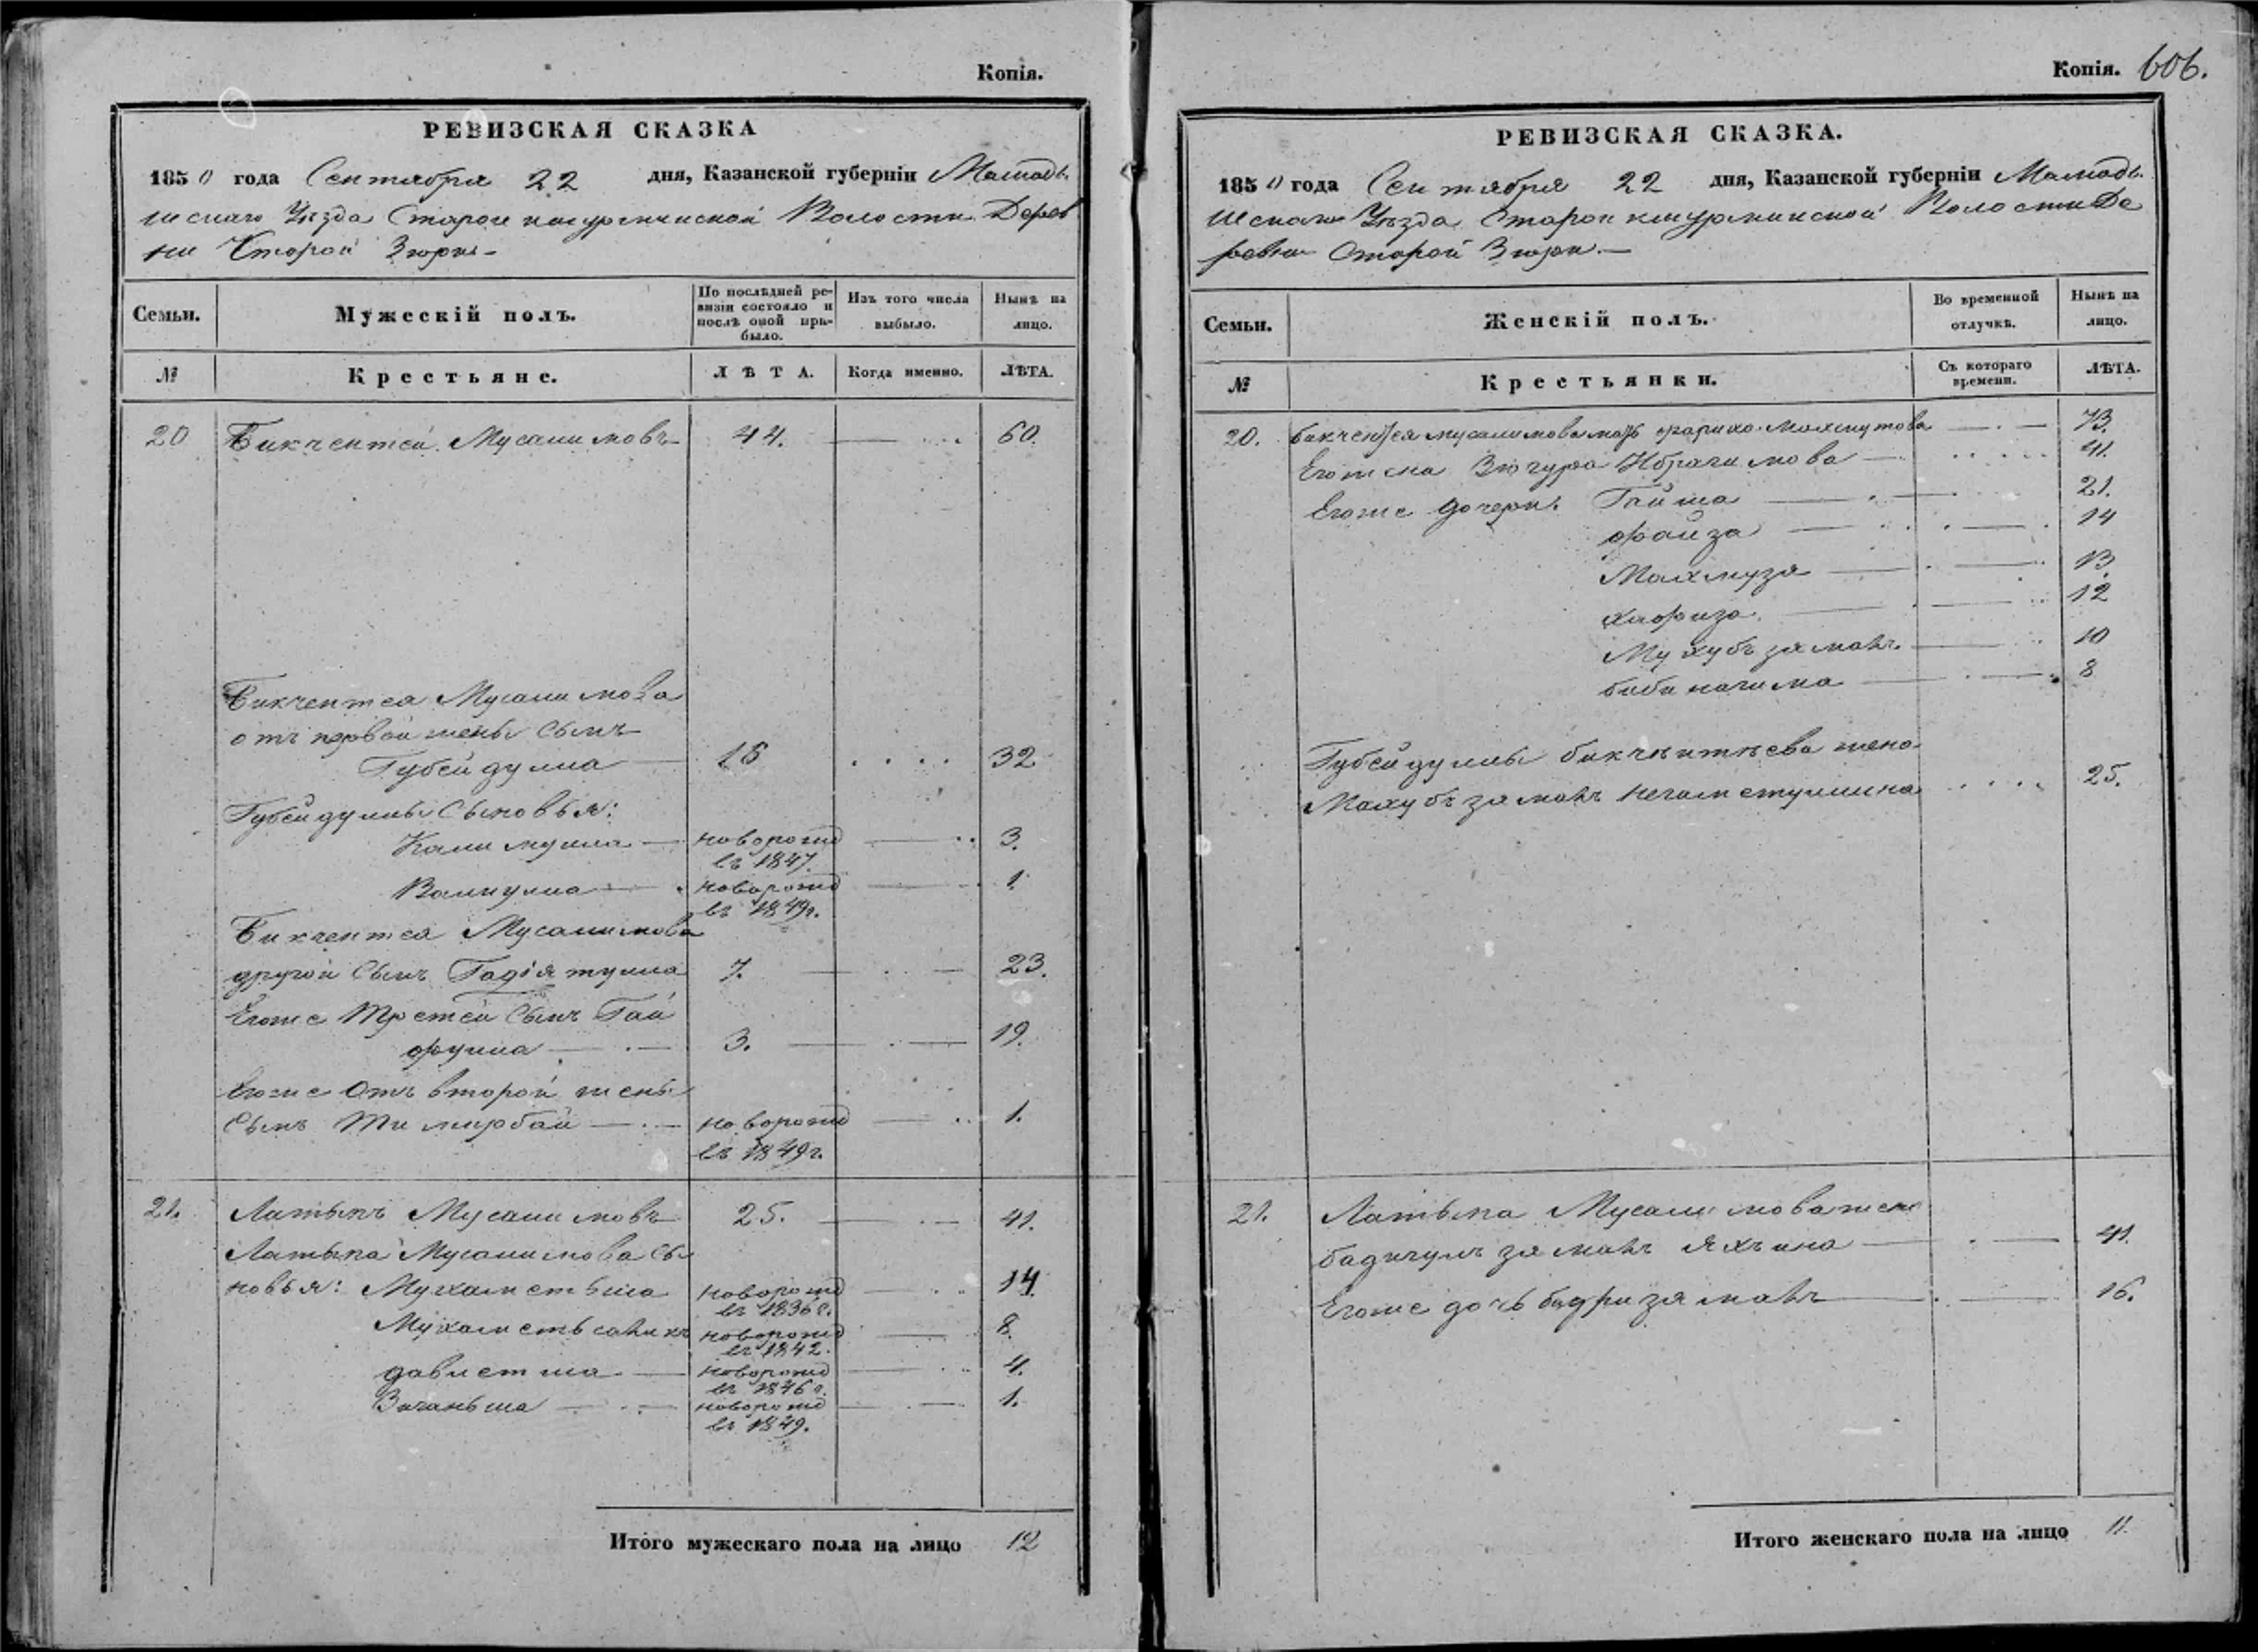 Копія.
РЕВИЗСКАЯ СКАЗКА
1850 года Сентября 22 дня, Казанской губерніи Мамады
шскаго Уѣзда Старой Волости Дерев
ни Старой Зюри
Семьи.
Мужескій полъ.
По послѣдней ре-
визіи состояло и
послѣ оной при-
было.
Изъ того числа
выбыло.
Нынѣ на
лицо.
№
Крестьяне.
ЛѢТА.
Когда именно.
ЛѢТА.
20 Бикчентей Мусалимовъ 44. 60.
Бикчентея Мусалимова
отъ первой жены сынъ
Губейдулла 16 32
Губейдуллы Сыновья:
Калимулла новорожд 3.
въ 1847.
Валиулла новорожд 1.
въ 1849г.
Бикчентея Мусалимова
другой Сынъ Гадіятулла 7. 23.
Егоже Третей Сынъ Гай
фулла 3. 19.
Егоже Отъ второй жены
Сынъ Тимирбай новорожд 1.
въ 1849г.
21. Латыпъ Мусалимовъ 25. 41.
Латыпа Мусалимова Сы
новья: Мухаметьша новорожд 14.
въ 1836г.
новорожд 8.
въ 1842.
давлетша новорожд 4.
въ 1846г.
Виганьша новорожд 1.
въ 1849.
Итого мужескаго пола на лицо 12
Копія. 606.
РЕВИЗСКАЯ СКАЗКА.
1850 года Сентября 22 дня, Казанской губерніи Мамады
шскаго Уѣзда Старой Волости Де
ревни Старой Зюри.
Семьи.
Женскій полъ.
Во временной
отлучкѣ.
Нынѣ на
лицо.
№
Крестьянки.
Съ котораго
времени.
ЛѢТА.
20. бикчентея мусалимова мать фариха Махмутова 73.
Егоже жена Зюгура Ибрагимова 41.
Егоже дочери: Гайша 21.
фаиза 14
Махмуза 13.
хафиза 12
Мухубъзяманъ 10
бибинагима 8
Губейдуллы бикчентѣева жена
Махубъзяманъ Негаметуллина 25.
21. Латыпа Мусалимова жена
бадигулъзяманъ Яхъина 41.
Егоже дочь бадризяманъ 16.
Итого женскаго пола на лицо 11.